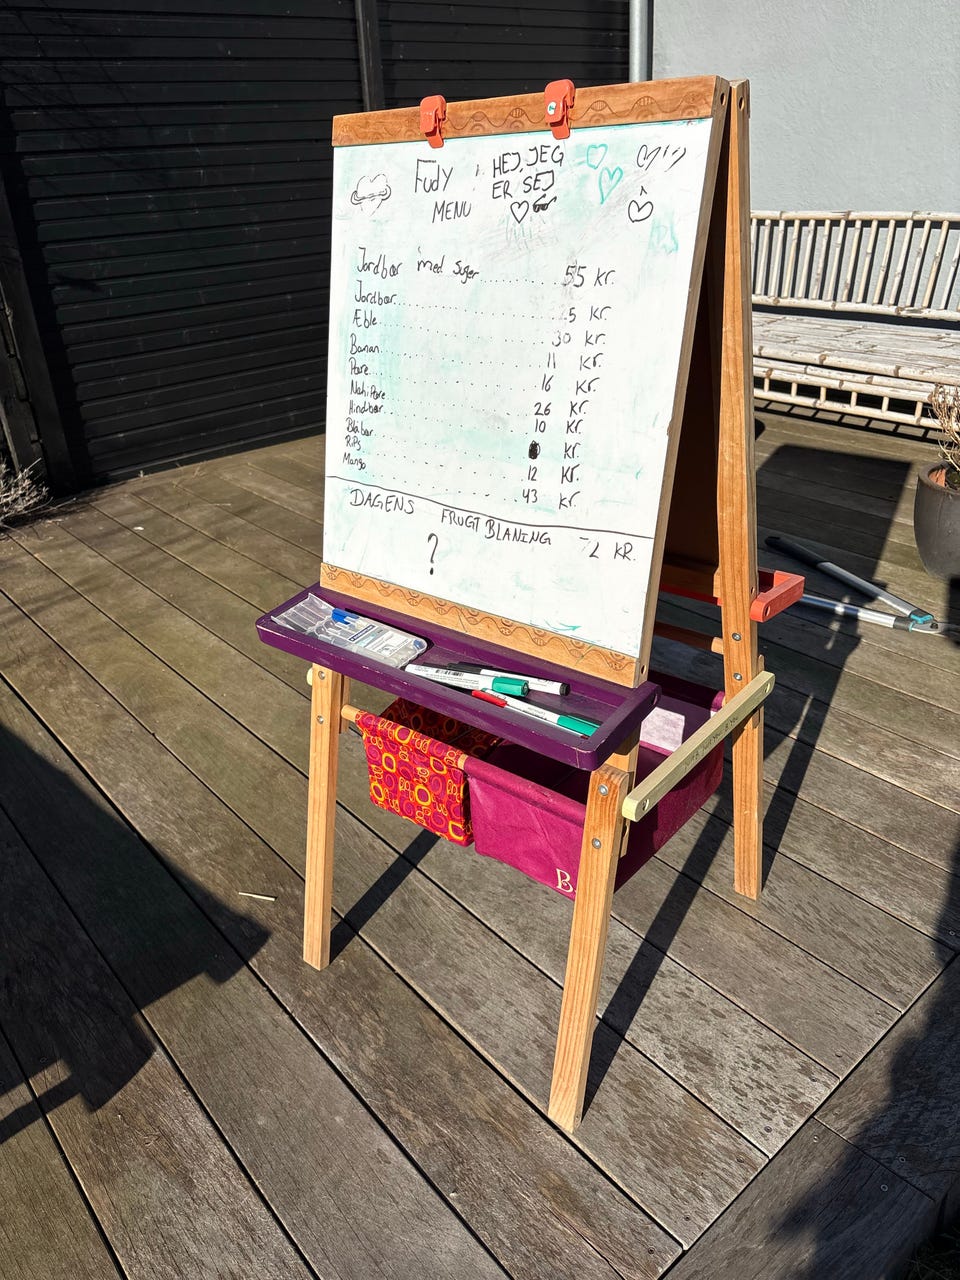 Fudy
MENU
HEJ, JEG
ER SEJ
Jordbær med suger 55 kr.
Jordbær kr.
Æble 30 kr.
Banan 11 kr.
Pære 16 kr.
NahiPære 26 kr.
Hindbær 10 kr.
Blåbær kr.
RiPs 12 kr.
Mango 43 kr.
DAGENS FRUGT BLANING 72 KR.
?
B.